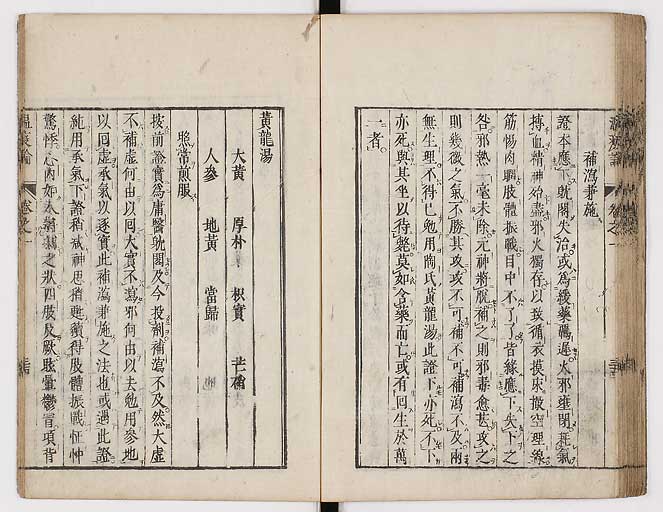 補瀉兼施
證本應下耽閣失治或為緩藥羈遲火邪壅閉耗氣
搏血精神殆盡邪火獨存以致循衣摸床撮空理線
筋惕肉瞤肢體振戰目中不了了皆緣應下失下之
咎邪熱一毫未除元神將脫補之則邪毒愈甚攻之
則幾微之氣不勝其攻攻不可補不可補瀉不及兩
無生理不得已勉用陶氏黃龍湯此證下亦死不下
亦死與其坐以待斃莫如含藥而亡或有回生於萬
一者
黃龍湯
大黃 厚朴 枳實 芒硝
人參 地黃 當歸
照常煎服
按前證實為庸醫耽閣及今投劑補瀉不及然大虛
不補虛何由以回大實不瀉邪何由以去勉用參地
以回虛承氣以逐實此補瀉兼施之法也或遇此證
純用承氣下證稍減神思稍甦續得肢體振戰怔忡
驚悸心內如人將捕之狀四肢反厥眩暈鬱冒項背
溫疫論 卷之一